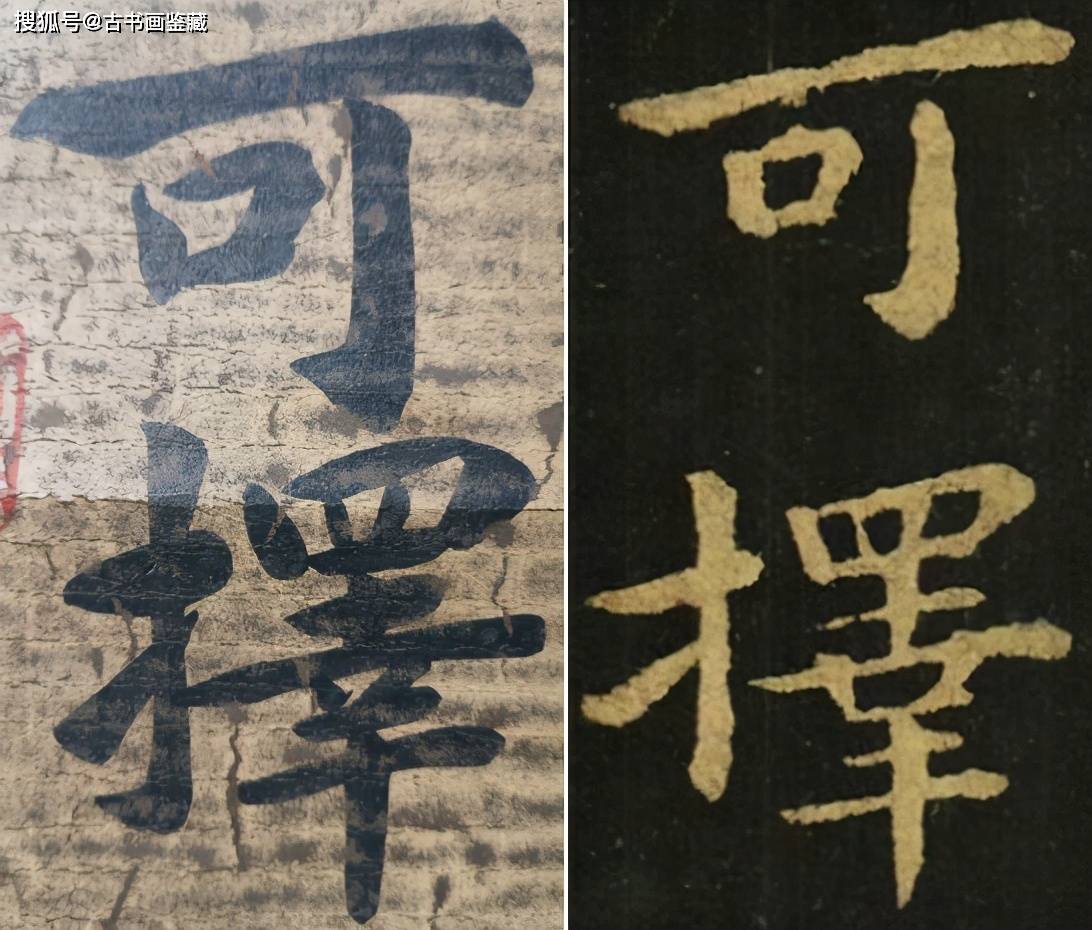 搜狐号@古书画鉴藏
可擇
可擇